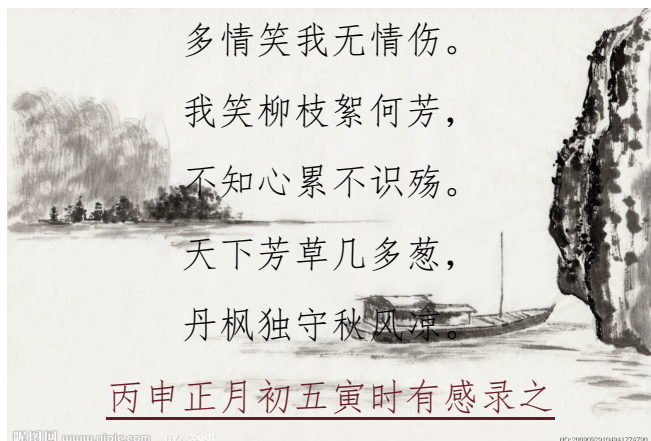 多情笑我无情伤。
我笑柳枝絮何芳，
不知心累不识殇。
天下芳草几多葱，
丹枫独守秋风凉。
丙申正月初五寅时有感录之
昵图网 www.nipic.com